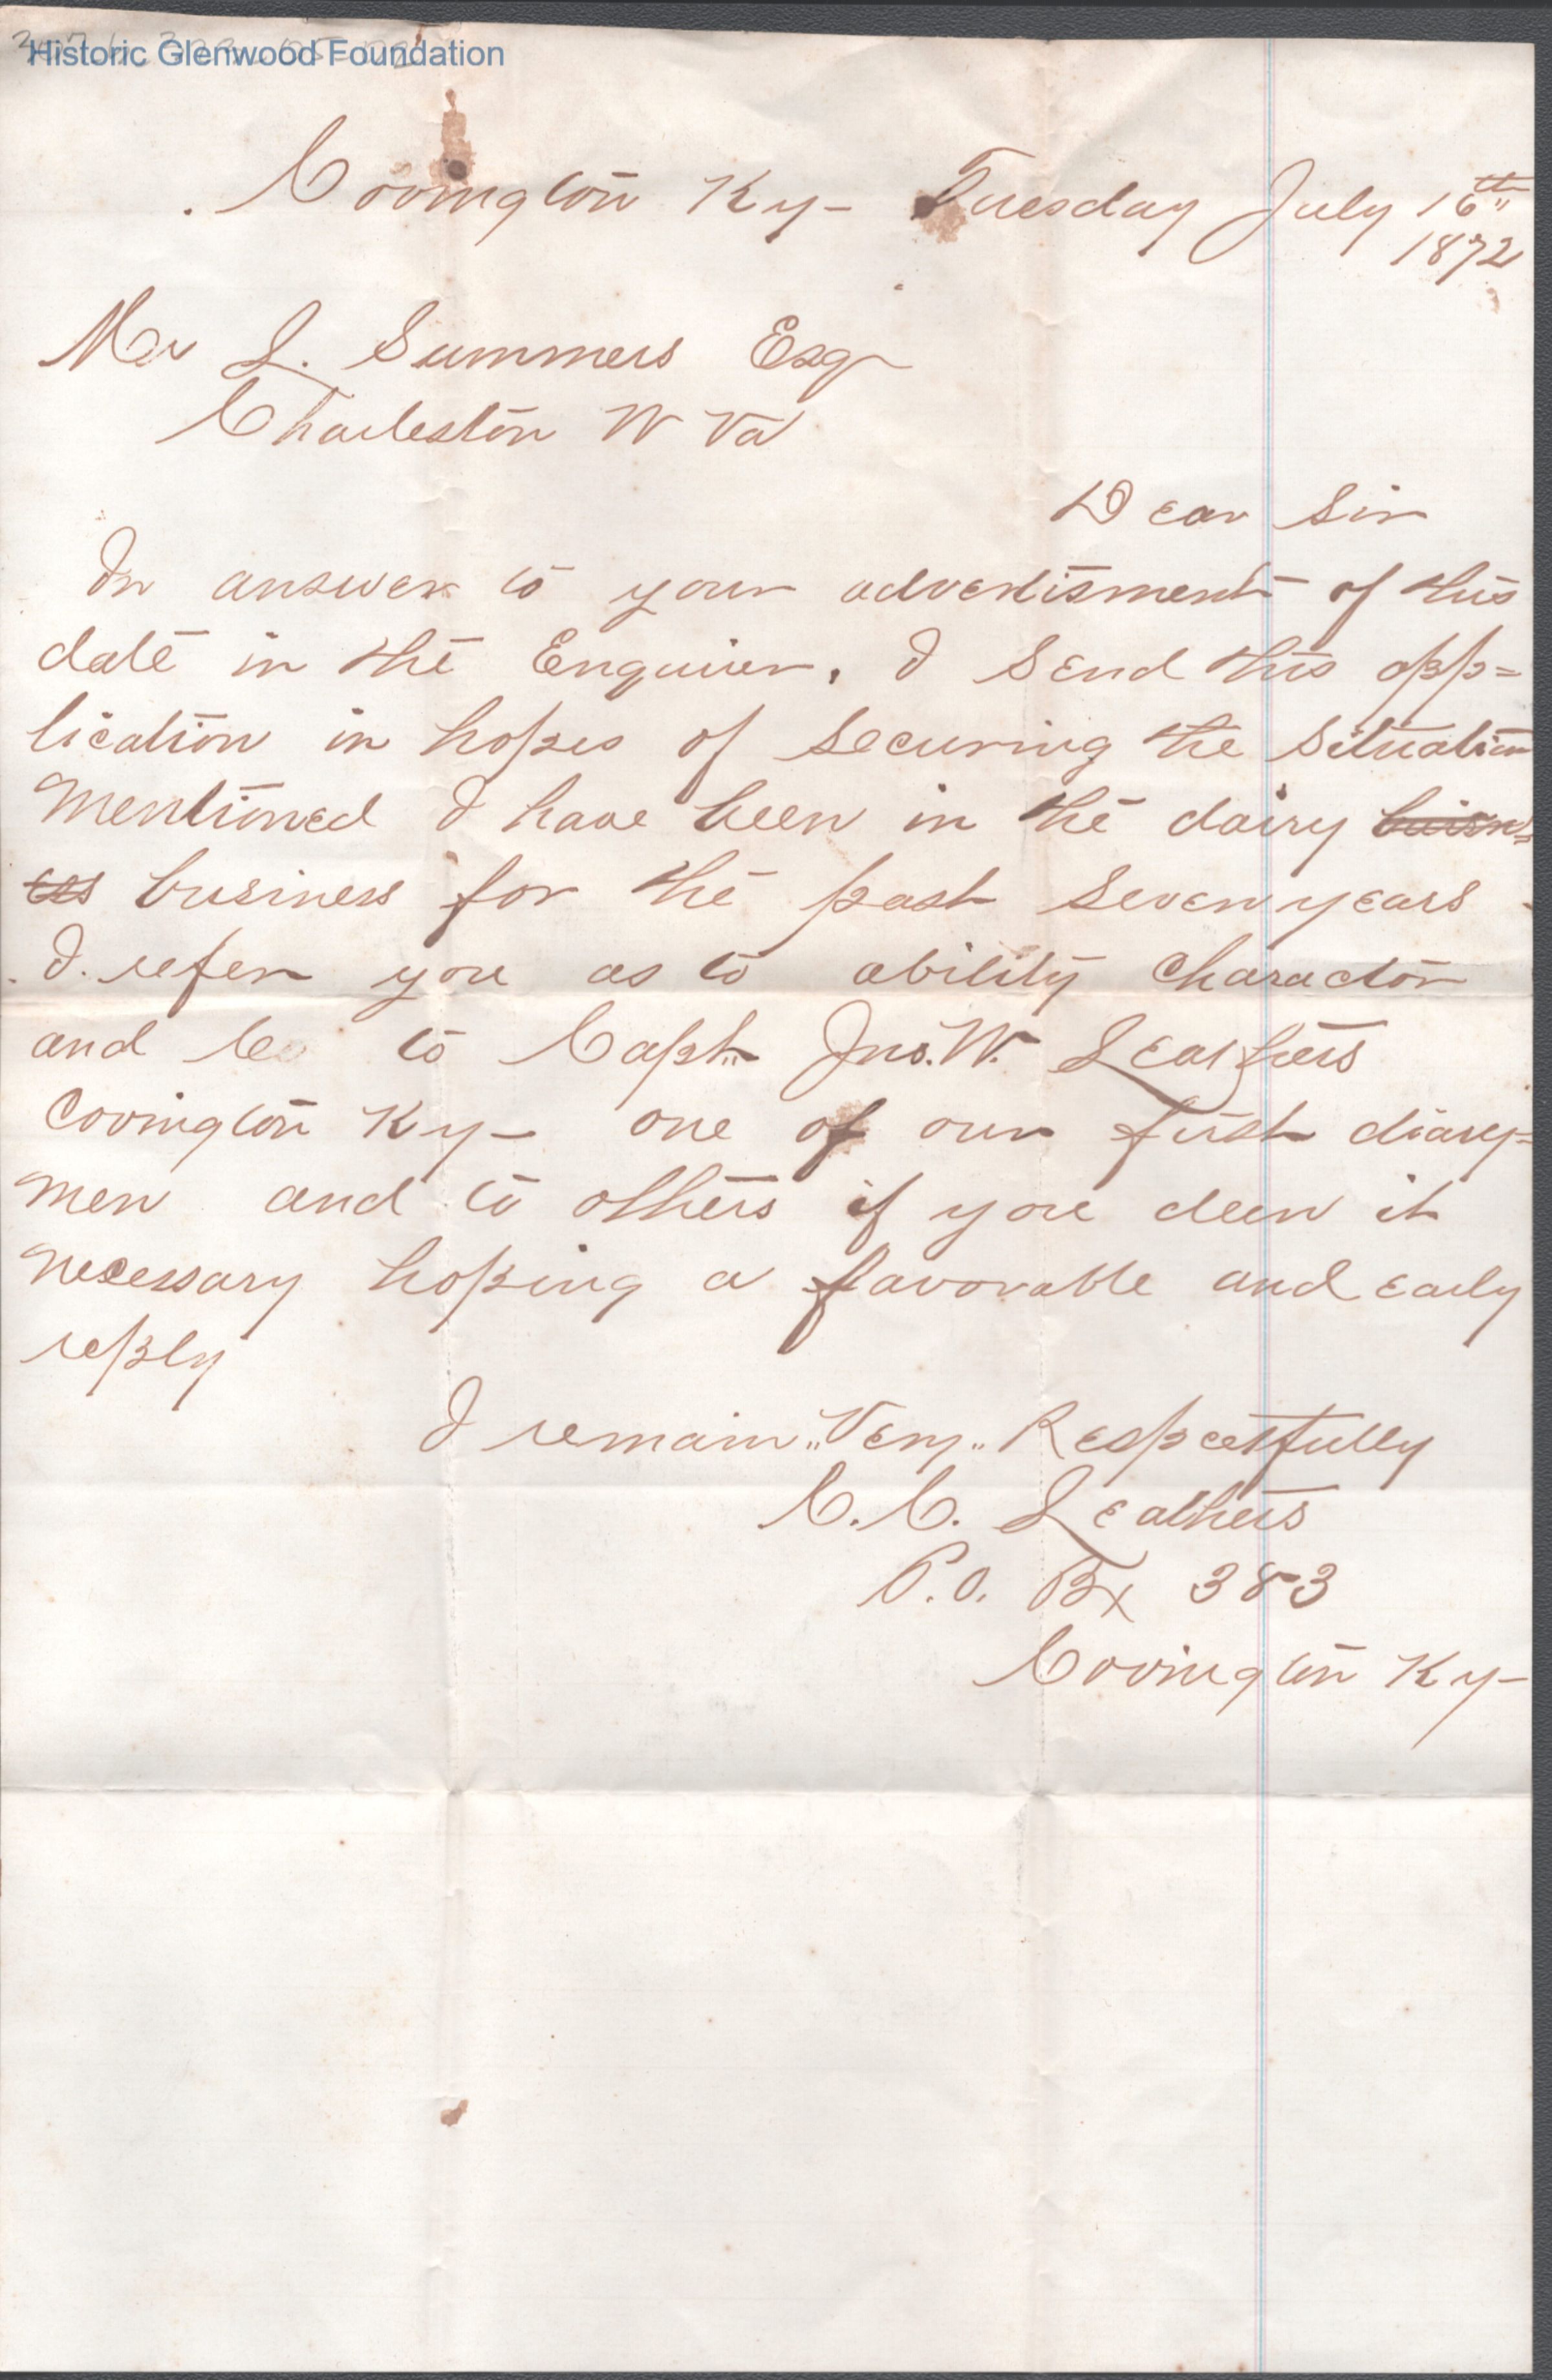 Historic Glenwood Foundation
Covington Ky - Tuesday July 16th
1872
Mr L. Summers Esq
Charleston W Va
Dear Sir
In answer to your advertisment of this
date in the Enquirer. I send this app=
lication in hopes of securing the situation
mentioned I have been in the dairy buisn=
ess business for the past seven years
I refer you as to ability charactor
and to Capt. Jno. W. Leathers
Covington Ky - one of our first diary=
men and to others if you deen it
necessary hoping a favorable and early
reply
I remain "Very" Respectfully
C. C. Leathers
P.O. Bx 383
Covington Ky -